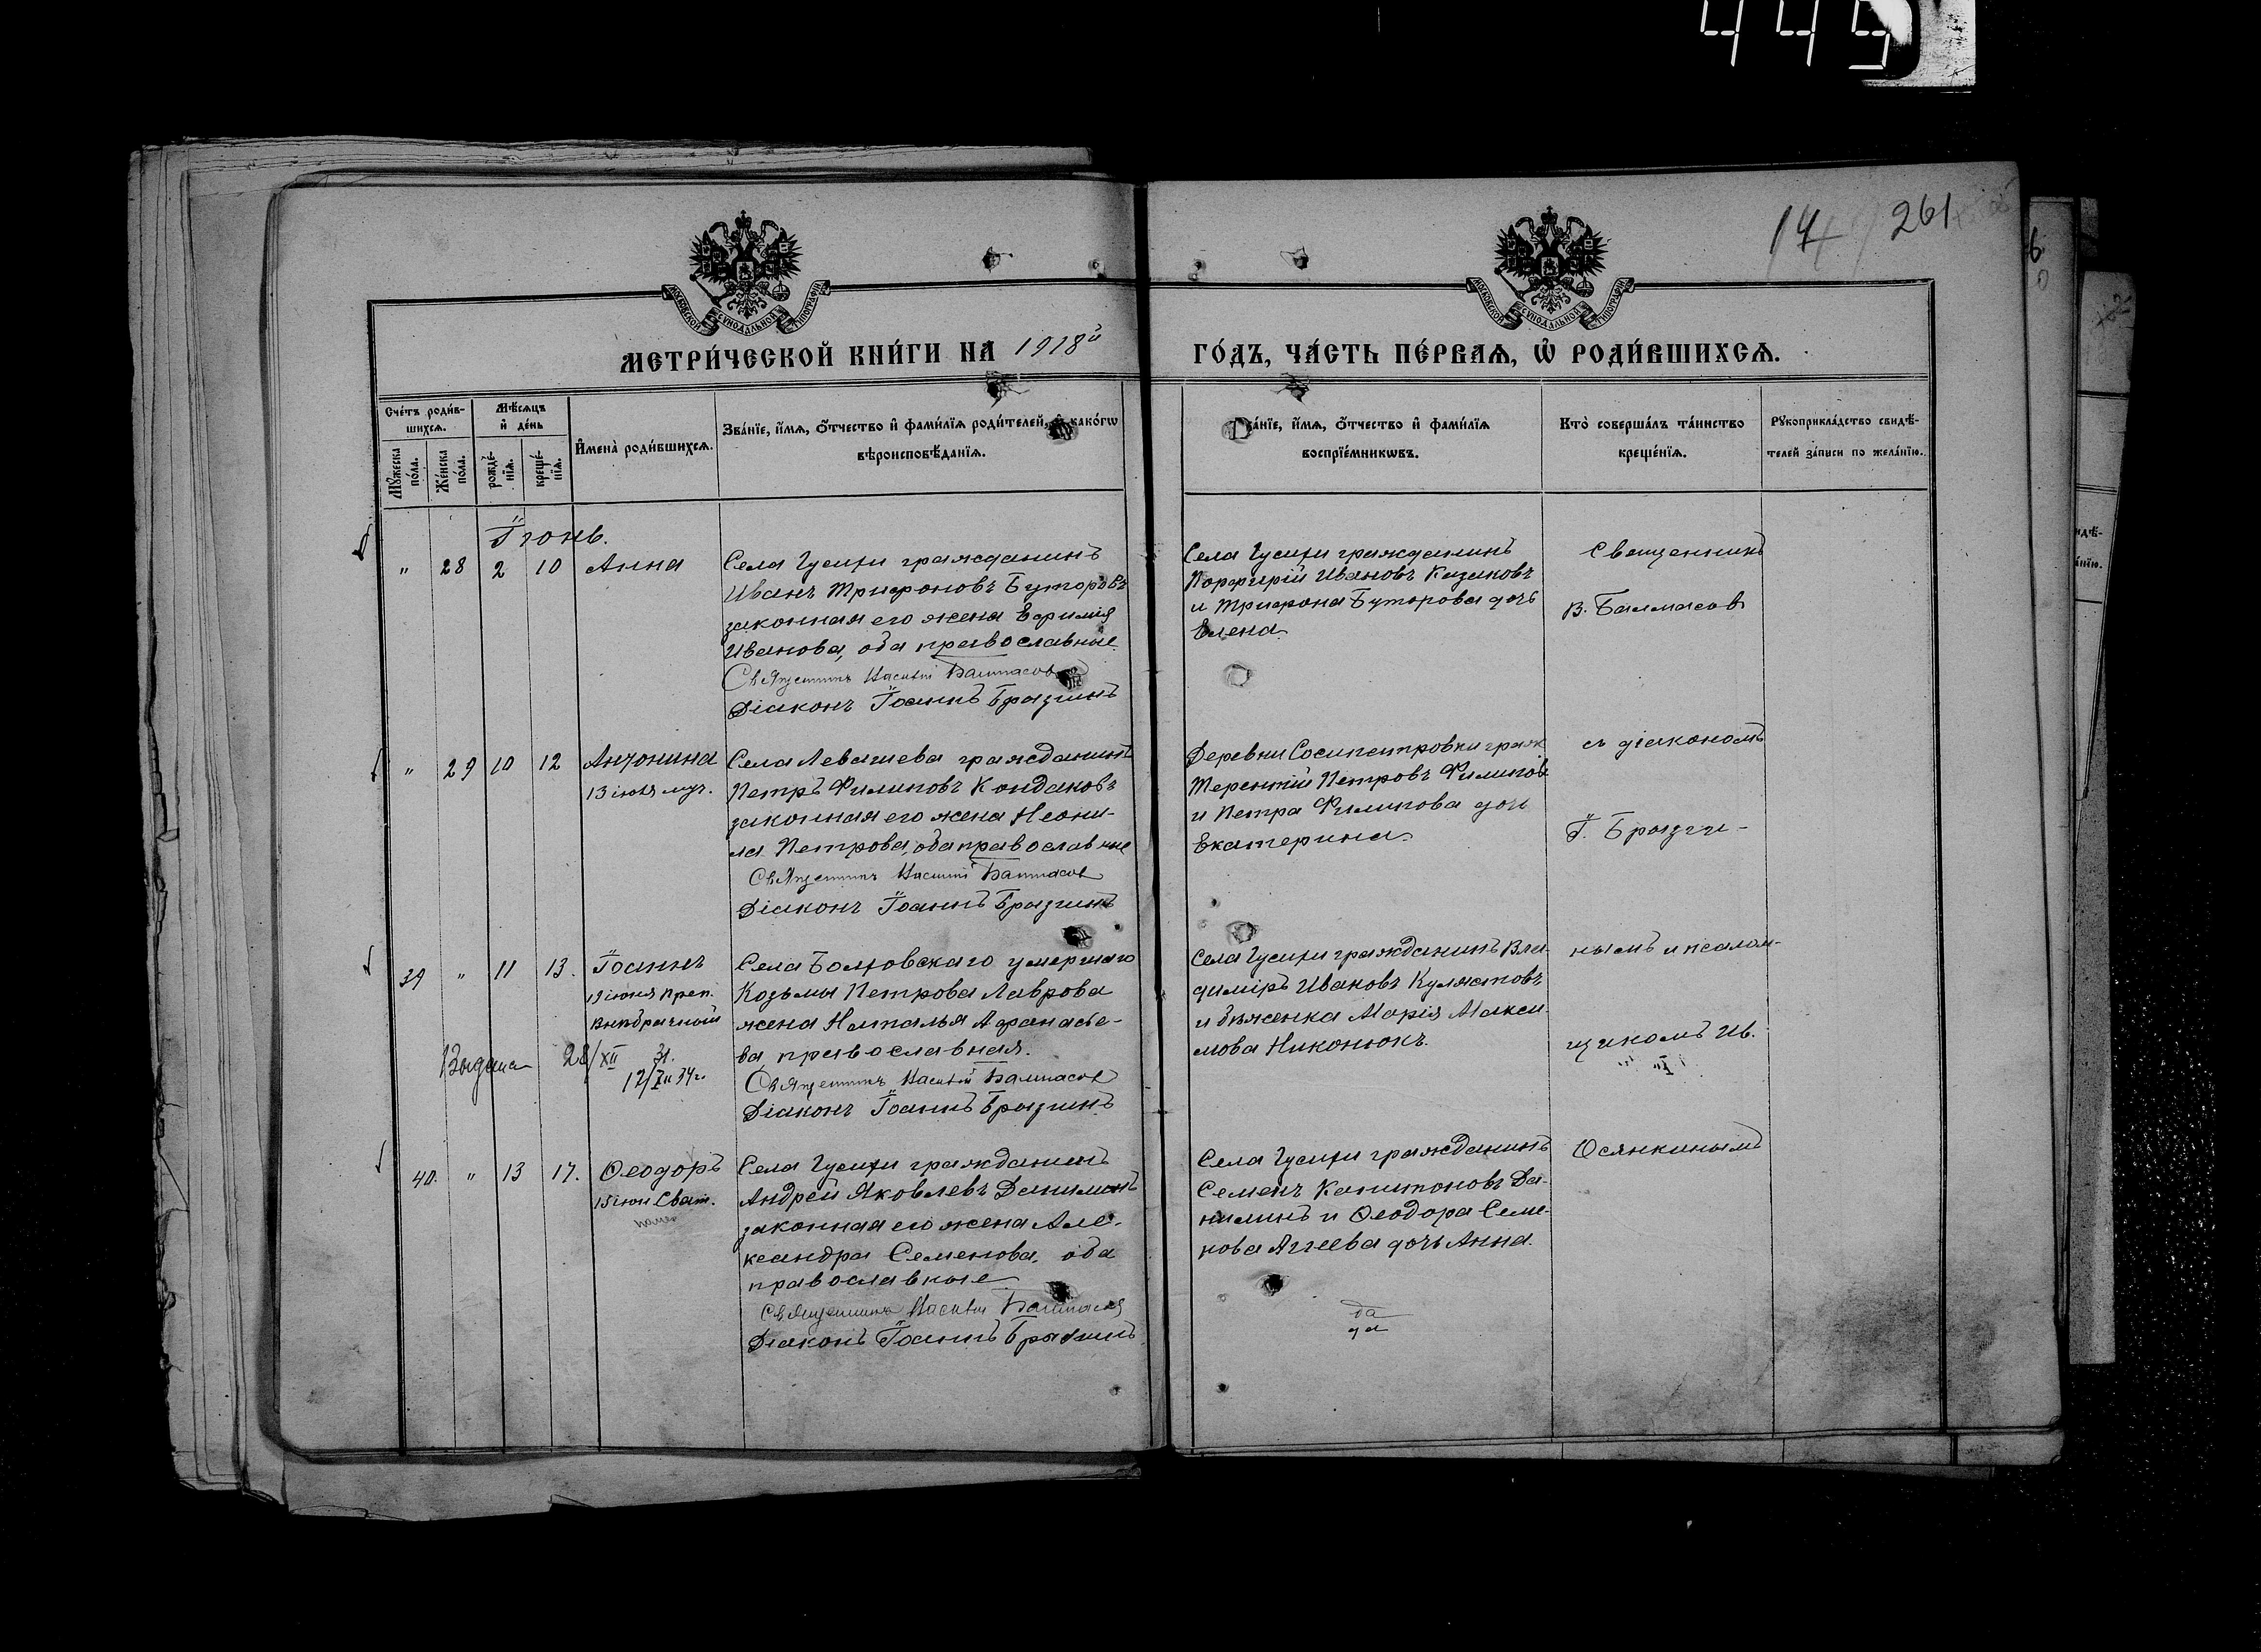 445
14 261
6
МОСКОВСКОЙ СѴНОДАЛЬНОЙ ТИПОГРАФІИ
МОСКОВСКОЙ СѴНОДАЛЬНОЙ ТИПОГРАФІИ
МЕТРИ́ЧЕСКОЙ КНИ́ГИ НА 1918й ГО́ДЪ, ЧА́СТЬ ПЕ́РВАѦ, Ѽ РОДИ́ВШИХСѦ.
Сче́тъ роди́в-
шихсѧ.
Мѣ́сѧцъ
и҆ де́нь
Мꙋ́жеска
по́ла.
Же́нска
по́ла.
рожде́-
нїѧ.
креще́-
нїѧ.
И҆мена̀ роди́вшихсѧ.
Зва́нїе, и҆́мѧ, ѻ҆́тчество и҆ фами́лїѧ роди́телей, и҆ како́гѡ
вѣроисповѣ́данїѧ.
Зва́нїе, и҆́мѧ, ѻ҆́тчество и҆ фами́лїѧ
воспрїе́мникѡвъ.
Кто̀ соверша́лъ та́инство
креще́нїѧ.
Рꙋкоприкла́дство свидѣ́-
телей за́писи по жела́нїю.
Іюнь.
" 28 2 10 Анна
Села Гусихи гражданинъ
Иванъ Трифоновъ Буторовъ
законная его жена Ефимія
Иванова, оба православные.
Священникъ Василій Балмасов
Діаконъ Іоаннъ Брызгинъ
Села Гусихи гражданинъ
Порфирій Ивановъ Казаковъ
и Трифона Буторова дочь
Елена.
Священникъ
В. Балмасов
" 29 10 12 Антонина
13 іюня муч.
Села Левашева гражданинъ
Петръ Филиповъ Кондаковъ
законная его жена Неони-
ла Петрова, оба православные
Священникъ Василій Балмасов
Діаконъ Іоаннъ Брызгинъ
Деревни Сосипетровки граж
Терентій Петровъ Филипов
и Петра Филипова дочь
Екатерина.
съ діакономъ
І. Брызги-
39 " 11 13. Іоаннъ
19 іюня Преп.
Внѣбрачный
Села Болховскаго умершаго
Козьмы Петрова Лаврова
жена Наталья Афанасье-
ва, православная.
Священникъ Василій Балмасов
Діаконъ Іоаннъ Брызгинъ
Выдана 28/XII 31.
12/III 34г.
Села Гусихи гражданинъ Вла-
диміръ Ивановъ Кулматовъ
и бѣженка Марія Макси-
мова Никонюкъ.
нымъ и псалом-
щикомъ Ив.
40. " 13 17. Ѳеодоръ
15 іюн Свят.
Села Гусихи гражданинъ
Андрей Яковлевъ Данилинъ
законная его жена Але-
ксандра Семенова, оба
православные
Священникъ Василій Балмасов
Діаконъ Іоаннъ Брызгинъ
Села Гусихи гражданинъ
Семенъ Капитоновъ Да-
нилинъ и Ѳеодора Семе-
нова Аггеева дочь Анна.
Осянкинымъ
да
да